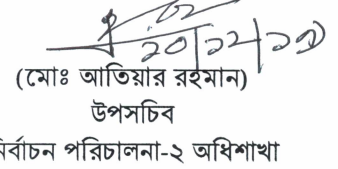 ২০/১২/১৩
(মোঃ আতিয়ার রহমান)
উপসচিব
নির্বাচন পরিচালনা-২ অধিশাখা